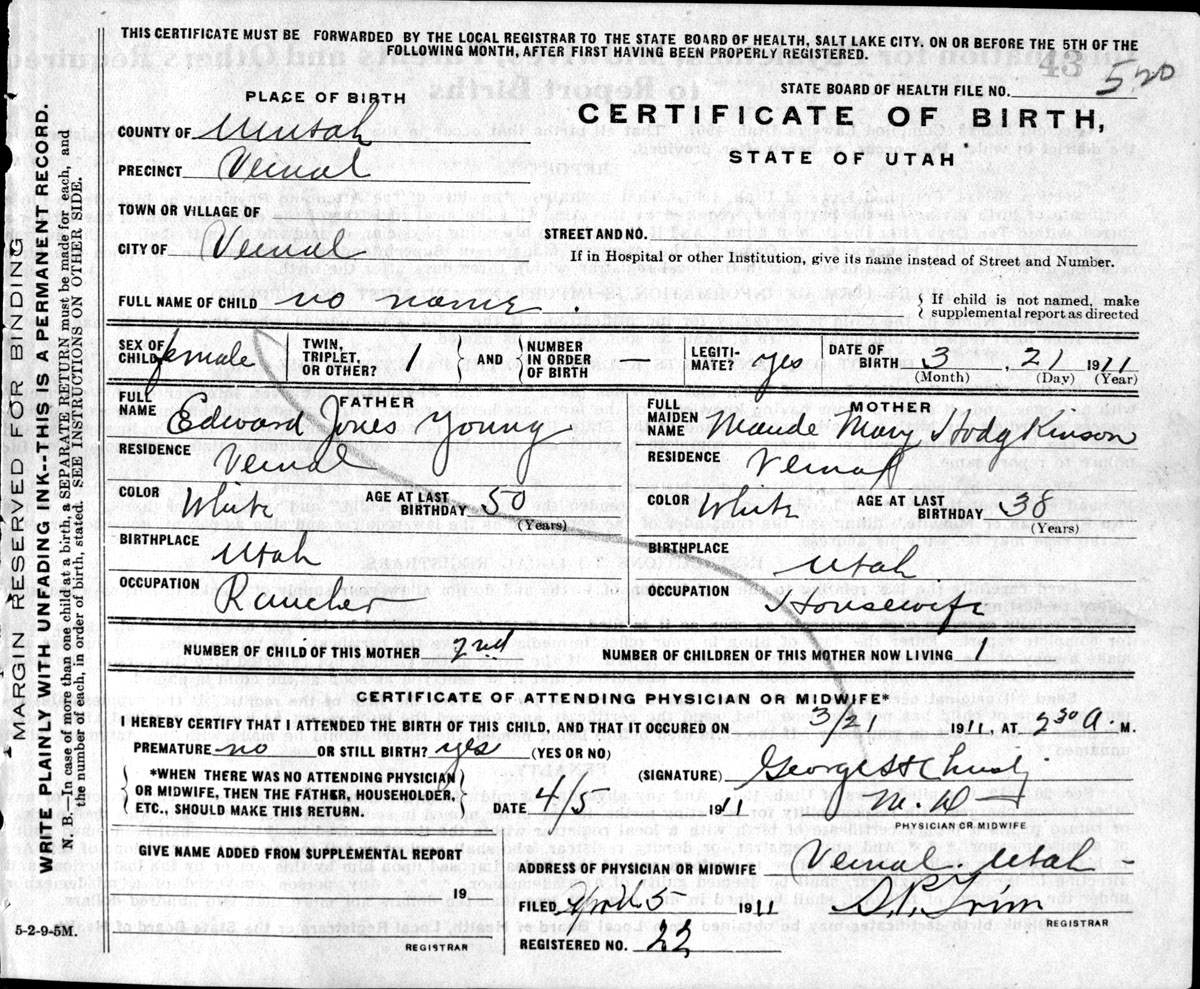 THIS CERTIFICATE MUST BE FORWARDED BY THE LOCAL REGISTRAR TO THE STATE BOARD OF HEALTH, SALT LAKE CITY. ON OR BEFORE THE 5TH OF THE
FOLLOWING MONTH, AFTER FIRST HAVING BEEN PROPERLY REGISTERED.
43
STATE BOARD OF HEALTH FILE NO. 520
PLACE OF BIRTH
CERTIFICATE OF BIRTH,
STATE OF UTAH
COUNTY OF Uintah
PRECINCT Vernal
TOWN OR VILLAGE OF
CITY OF Vernal
STREET AND NO.
If in Hospital or other Institution, give its name instead of Street and Number.
FULL NAME OF CHILD no name.
{ If child is not named, make
supplemental report as directed
SEX OF CHILD female TWIN, TRIPLET, OR OTHER? 1 } AND { NUMBER IN ORDER OF BIRTH — LEGITI-MATE? yes DATE OF BIRTH 3, 21 1911
(Month) (Day) (Year)
FATHER
FULL NAME Edward Jones Young
RESIDENCE Vernal
COLOR White AGE AT LAST BIRTHDAY 50
(Years)
BIRTHPLACE Utah
OCCUPATION Rancher
MOTHER
FULL MAIDEN NAME Maude Mary Hodgkinson
RESIDENCE Vernal
COLOR White AGE AT LAST BIRTHDAY 38
(Years)
BIRTHPLACE Utah
OCCUPATION Housewife
NUMBER OF CHILD OF THIS MOTHER 2nd NUMBER OF CHILDREN OF THIS MOTHER NOW LIVING 1
CERTIFICATE OF ATTENDING PHYSICIAN OR MIDWIFE*
I HEREBY CERTIFY THAT I ATTENDED THE BIRTH OF THIS CHILD, AND THAT IT OCCURED ON 3/21 1911, AT 230 A. M.
PREMATURE no OR STILL BIRTH? yes (YES OR NO)
{ *WHEN THERE WAS NO ATTENDING PHYSICIAN
OR MIDWIFE, THEN THE FATHER, HOUSEHOLDER,
ETC., SHOULD MAKE THIS RETURN. }
(SIGNATURE) George H
M.D.
PHYSICIAN OR MIDWIFE
DATE 4/5 1911
GIVE NAME ADDED FROM SUPPLEMENTAL REPORT
19
REGISTRAR
ADDRESS OF PHYSICIAN OR MIDWIFE Vernal Utah
FILED April 5 1911
REGISTRAR
REGISTERED NO. 22
5-2-9-5M.
MARGIN RESERVED FOR BINDING
WRITE PLAINLY WITH UNFADING INK--THIS IS A PERMANENT RECORD.
N. B.—In case of more than one child at a birth, a SEPARATE RETURN must be made for each, and
the number of each, in order of birth, stated. SEE INSTRUCTIONS ON OTHER SIDE.